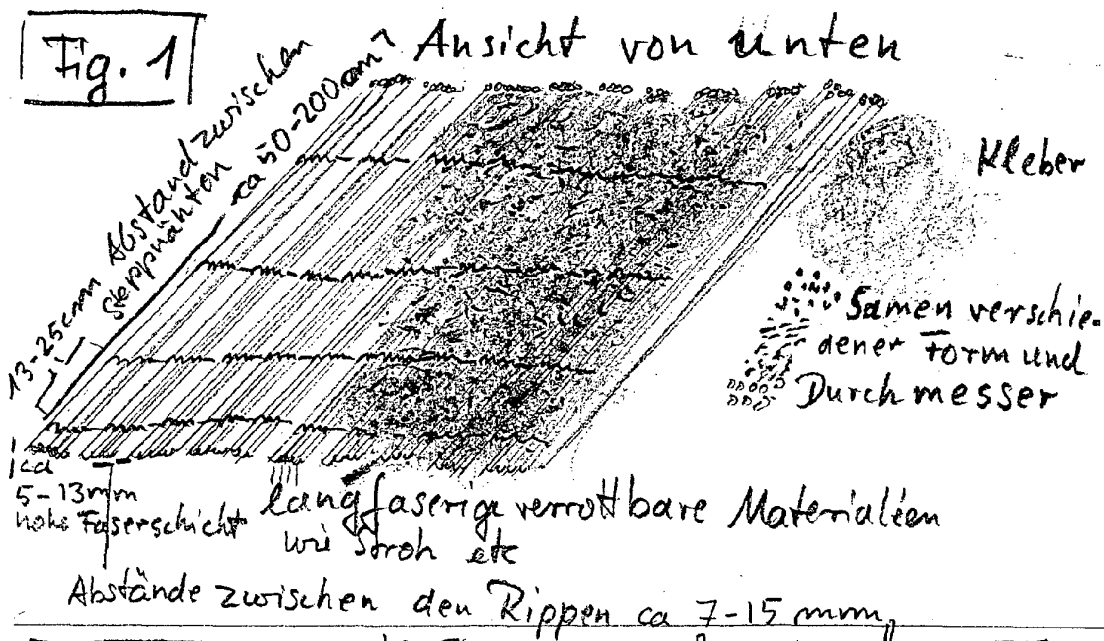 Fig. 1
Ansicht von Unten
13-25cm Abstand zwischen
Steppnähten
ca 50-200cm
Kleber
Samen verschie-
dener Form und
Durchmesser
ca
5-13mm
hohe Faserschicht
langfaserige verrottbare Materialien
wie Stroh etc
Abstände zwischen den Rippen ca 7-15 mm